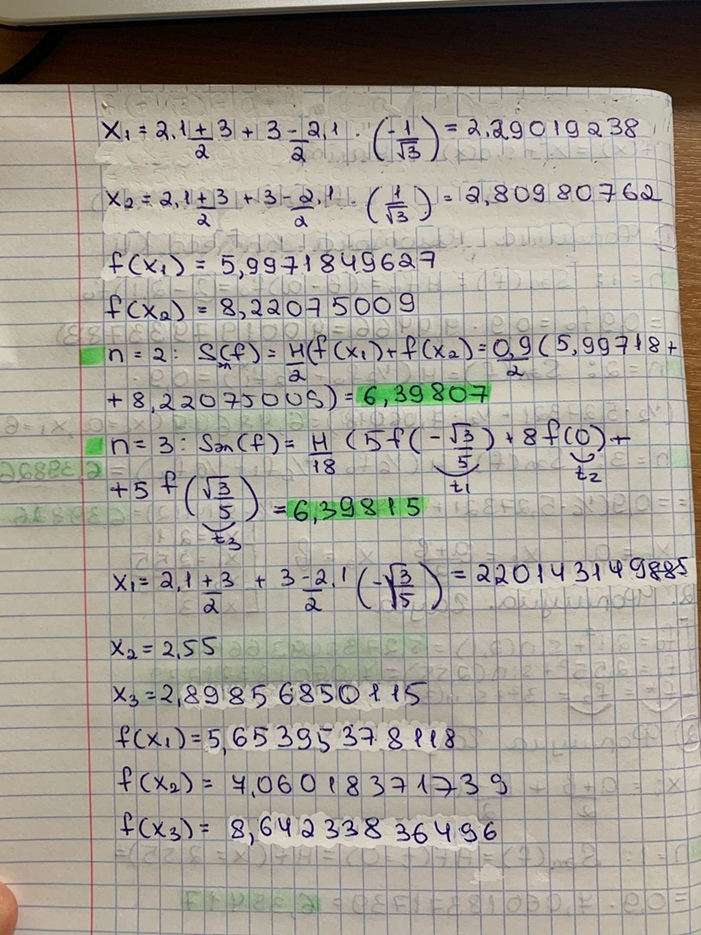 x₁ = 2,1+3/2 + 3-2,1/2 · (-1/√3) = 2,29019238
x₂ = 2,1+3/2 + 3-2,1/2 · (1/√3) = 2,80980762
f(x₁) = 5,9971849627
f(x₂) = 8,22075009
n = 2 : Sm(f) = H/2 (f(x₁) + f(x₂) = 0,9/2 ( 5,99718 +
+ 8,22075009) = 6,39807
n = 3 : Sm(f) = H/18 (5f(-√3/5) + 8f(0) +
t₁ t₂
+5 f (√3/5) = 6,39815
t₃
x₁ = 2,1+3/2 + 3-2,1/2 (-√3/5) = 220143149885
x₂ = 2,55
x₃ = 2,89856850115
f(x₁) = 5,65395378118
f(x₂) = 7,06018371739
f(x₃) = 8,64233836496